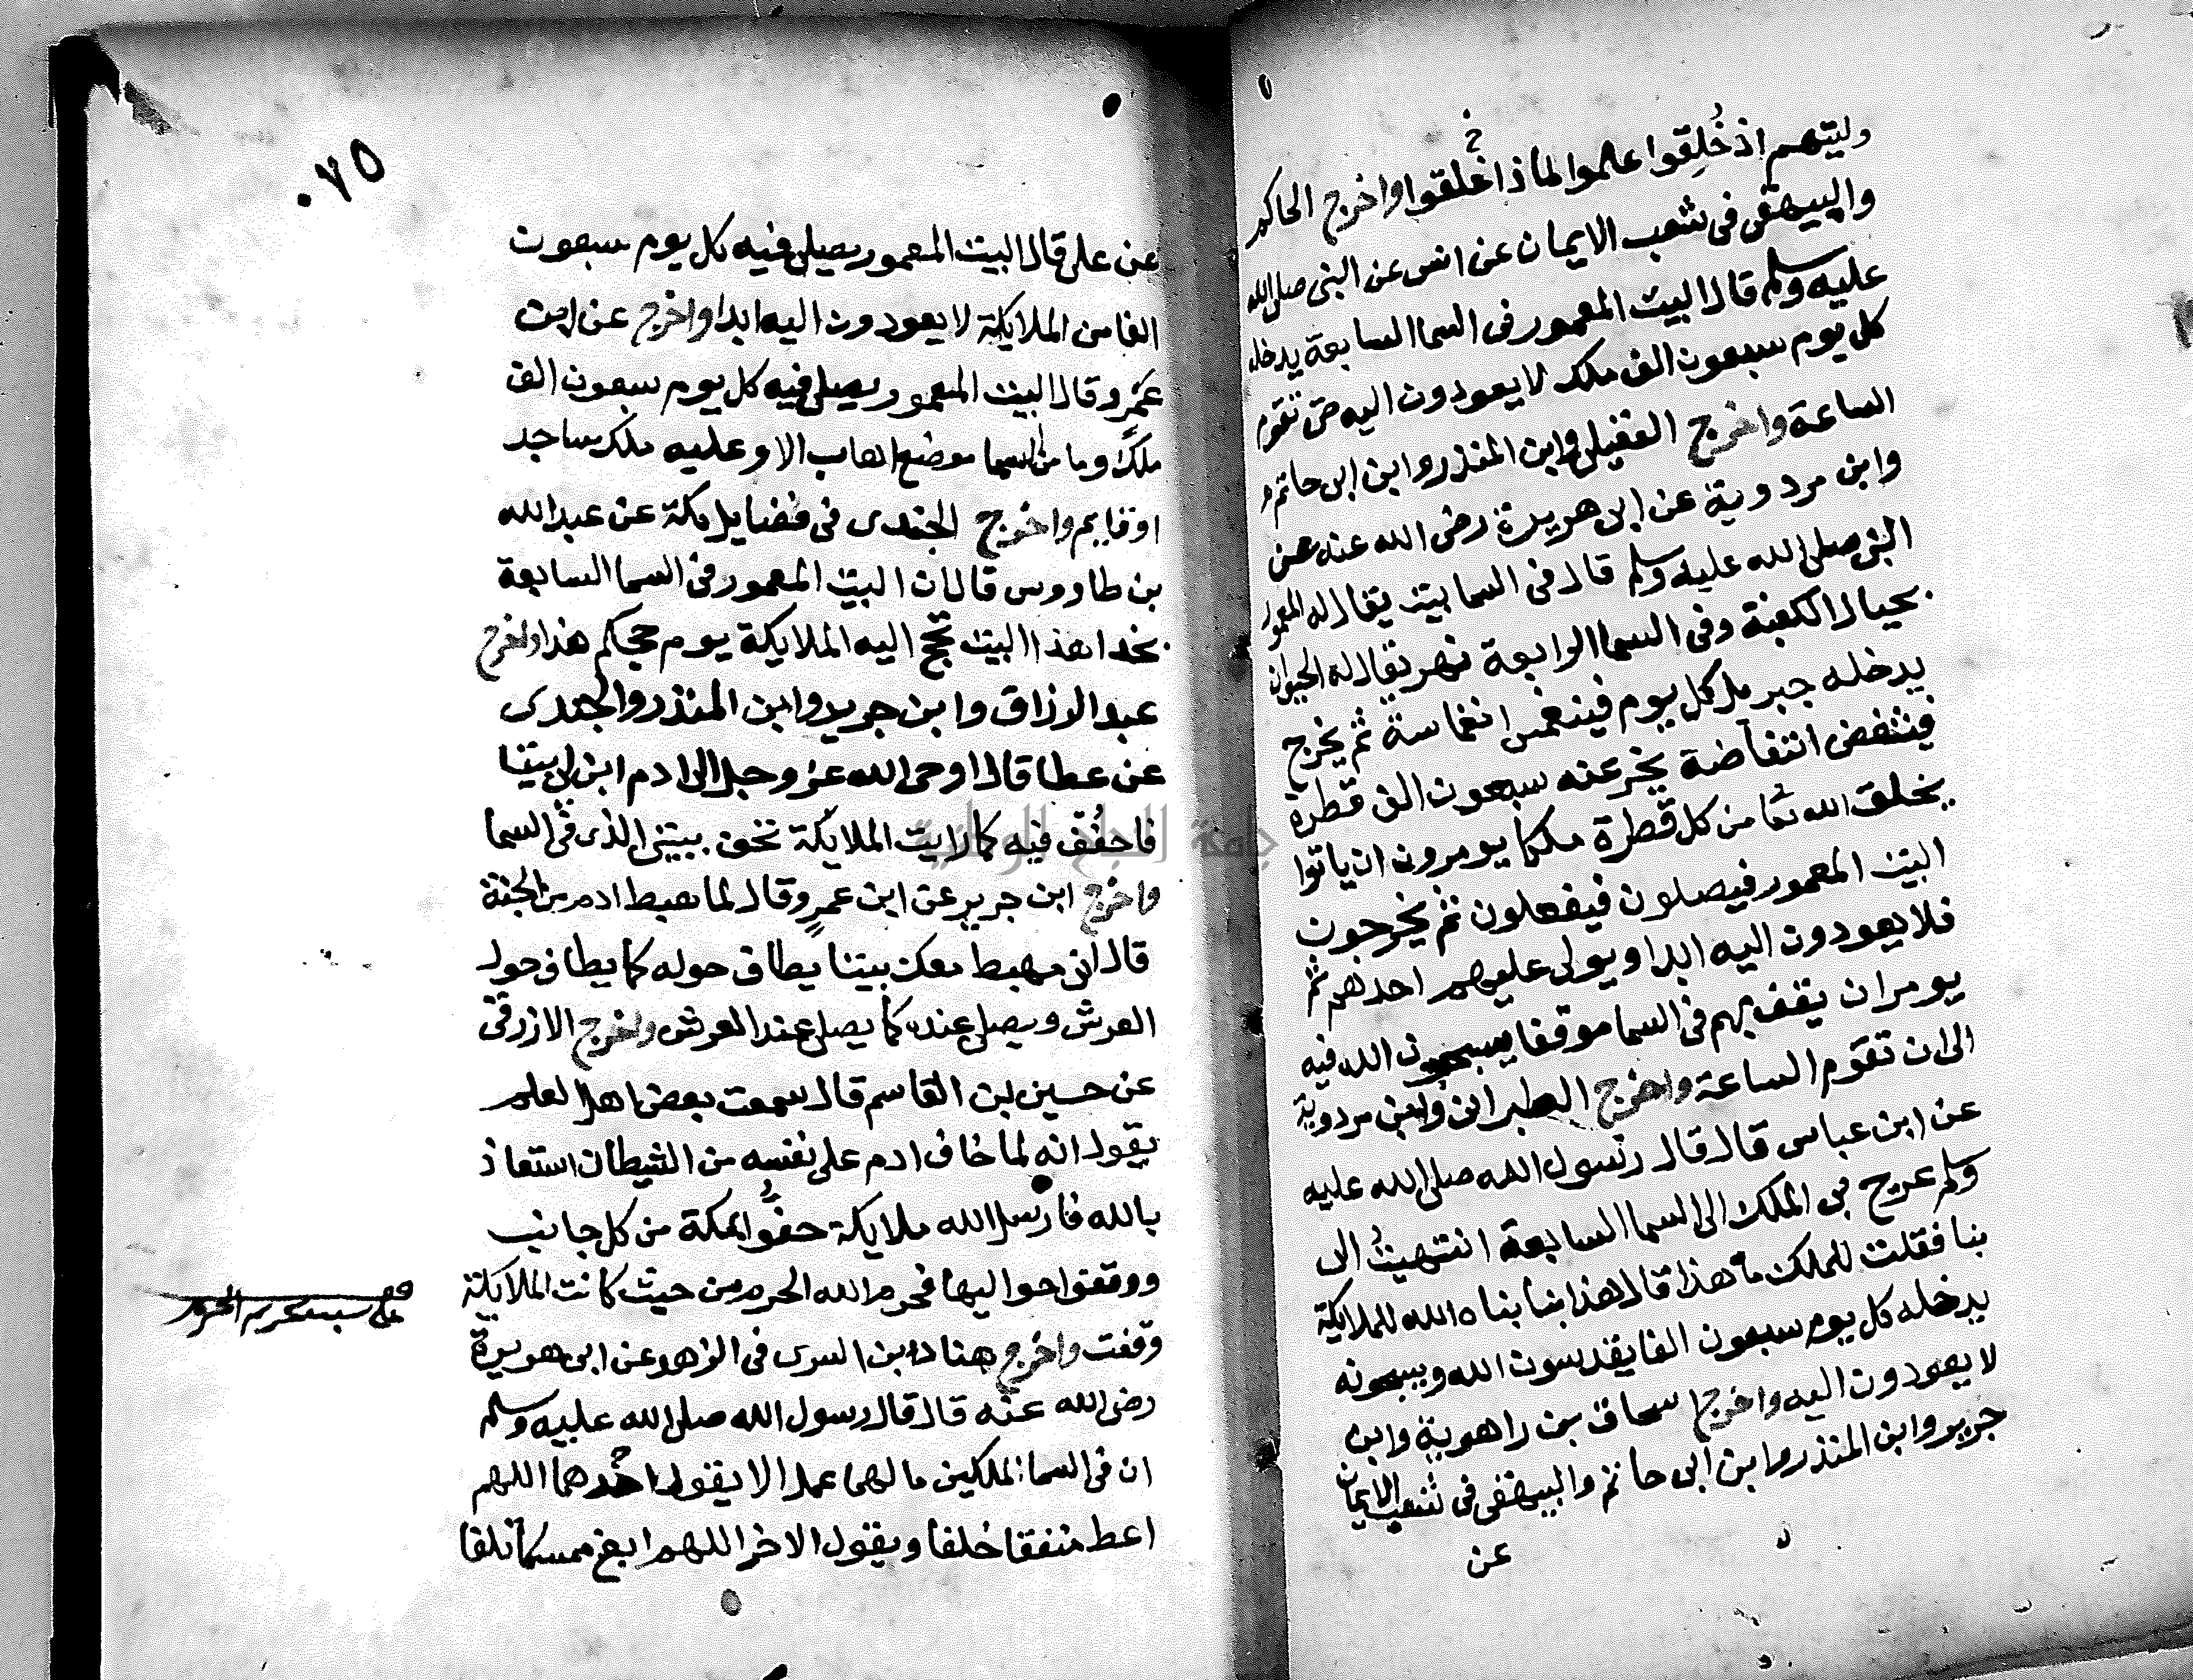 وليتهم اذ خُلِقوا علموا لماذا خُلقوا واخرج الحاكم
والبيهقى فى شعب الايمان عن انس عن النبى صلى الله
عليه وسلم قال البيت المعمور فى السما السابعة يدخله
كل يوم سبعون الف ملك لا يعودون اليه حتى تقوم
الساعة واخرج العقيلى وابن المنذر وابن ابى حاتم
وابن مردوية عن ابى هريرة رضى الله عنه عن
النبى صلى الله عليه وسلم قال فى السما بيت يقال له المعمور
بحيال الكعبة وفى السما الرابعة نهر يقال له الحيوان
يدخله جبريل كل يوم فينغمس انغماسة ثم يخرج
فينتفض انتفاضة يخر عنه سبعون الف قطرة
يخلق الله تعا من كل قطرة ملكا يومرون ان ياتوا
البيت المعمور فيصلون فيفعلون ثم يخرجون
فلا يعودون اليه ابدا ويولى عليهم احدهم ثم
يومر ان يقف بهم فى السما موقفا يسبحون الله فيه
الى ان تقوم الساعة واخرج الطبرانى وابن مردوية
عن ابن عباس قال قال رسول الله صلى الله عليه
وسلم عرج بى الملك الى السما السابعة انتهيت الى
بنا فقلت للملك ما هذا قال هذا بنا بناه الله للملايكة
يدخله كل يوم سبعون الفا يقدسون الله ويسبحونه
لا يعودون اليه واخرج اسحاق بن راهوية وابن
جرير وابن المنذر وابن ابى حاتم والبيهقى فى شعب الايمان
عن
٠٧٥
عن على قال البيت المعمور يصلى فيه كل يوم سبعون
الفا من الملايكة لا يعودون اليه ابدا واخرج عن ابن
عمرو قال البيت المعمور يصلى فيه كل يوم سبعون الف
ملك وما من السما موضع اهاب الا وعليه ملك ساجد
او قايم واخرج الجندى فى فضايل مكة عن عبد الله
بن طاووس قال ان البيت المعمور فى السما السابعة
بحذا هذا البيت تحج اليه الملايكة يوم حجكم هذا واخرج
عبد الرزاق وابن جرير وابن المنذر والجندى
عن عطا قال اوحى الله عز وجل الى ادم ابن لى بيتا
فاحفف فيه كما رايت الملايكة تحف ببيتى الذى فى السما
واخرج ابن جرير عن ابن عمرو قال لما هبط ادم من الجنة
قال انى مهبط معك بيتا يطاف حوله كما يطاف حول
العرش ويصلى عنده كما يصلى عند العرش واخرج الازرقى
عن حسين بن القاسم قال سمعت بعض اهل العلم
يقول انه لما خاف ادم على نفسه من الشيطان استعاذ
بالله فارسل الله ملايكة حفوا بمكة من كل جانب
ووقفوا حواليها فحرم الله الحرم من حيث كانت الملايكة
قف على سبب تحريم الحرم
وقفت واخرج هناد بن السرى فى الزهد عن ابى هريرة
رضى الله عنه قال قال رسول الله صلى الله عليه وسلم
ان فى السما لملكين ما لهما عمل الا يقول احدهما اللهم
اعط منفقا خلفا ويقول الاخر اللهم ابغ ممسكا تلفا
جامعة النجاح الوطنية